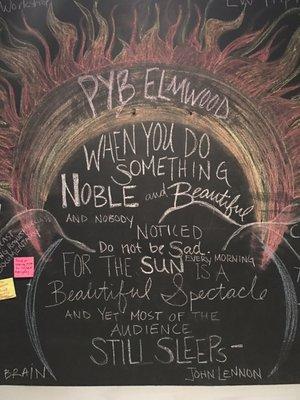 PYB ELMWOOD
WHEN YOU DO
SOMETHING
NOBLE and Beautiful
AND NOBODY
NOTICED
Do not be Sad.
FOR THE SUN EVERY MORNING
IS A
Beautiful Spectacle
AND YET MOST OF THE
AUDIENCE
STILL SLEEPS-
JOHN LENNON
BRAIN